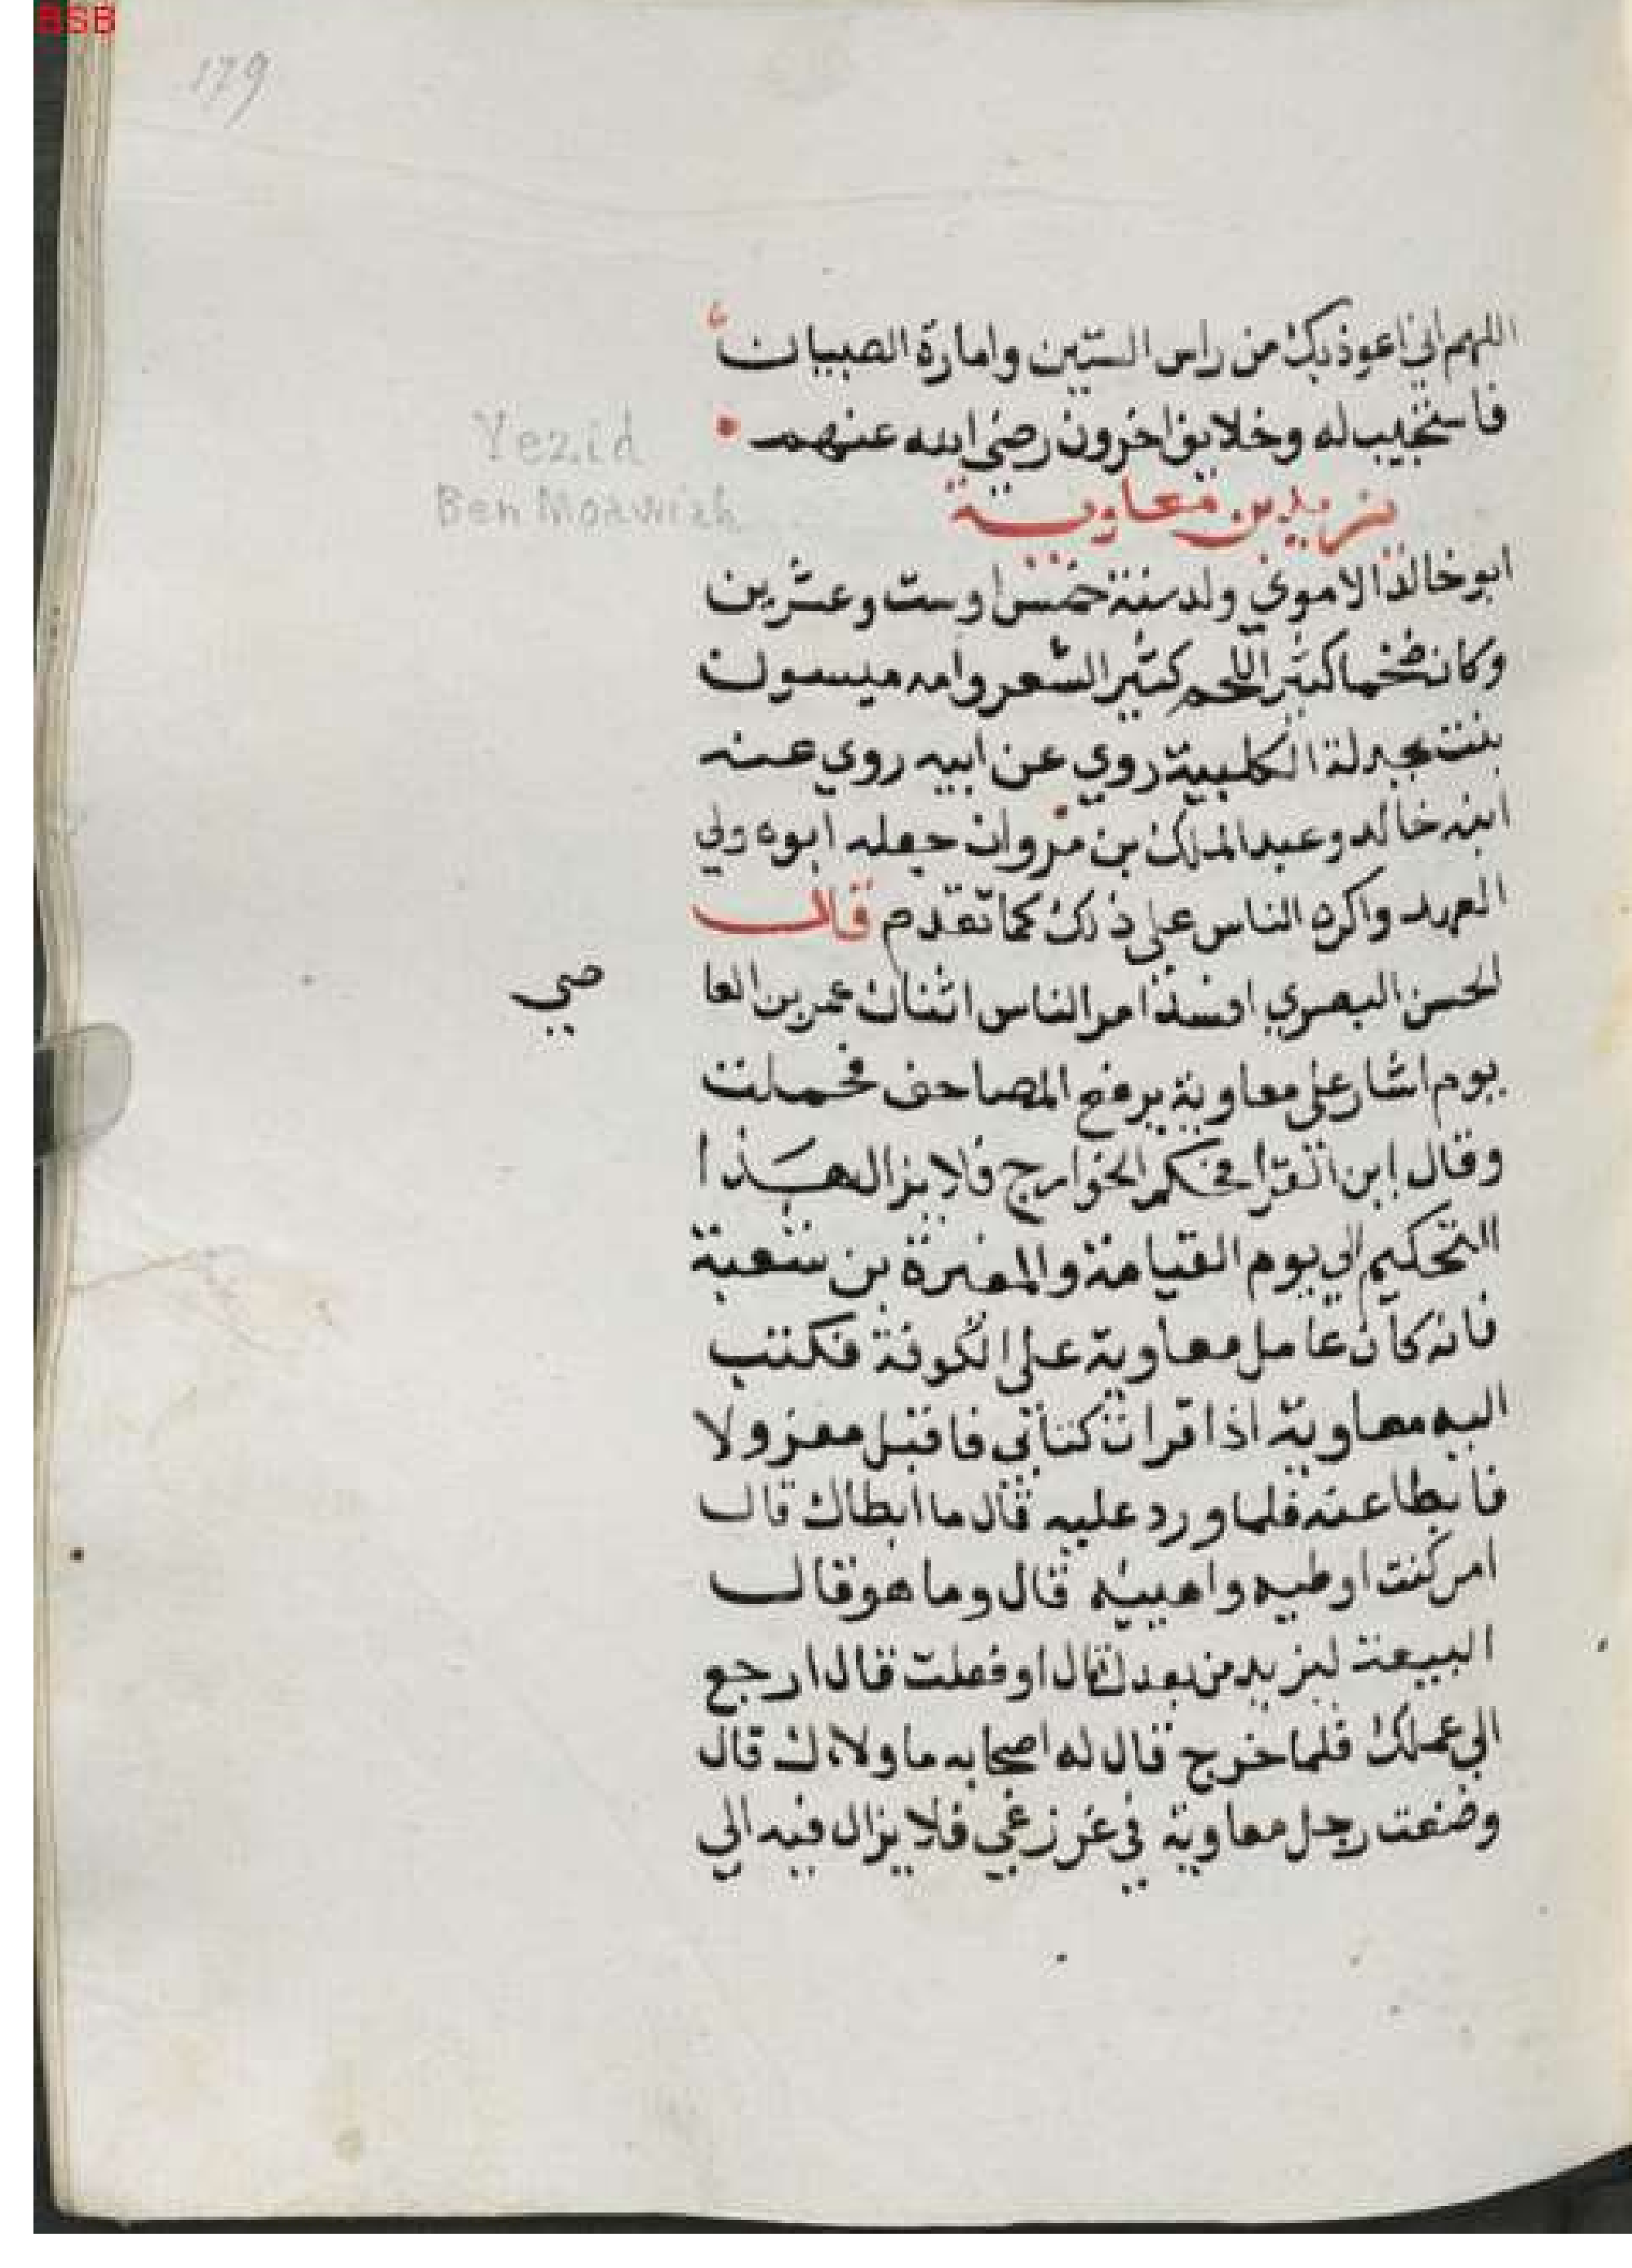 BSB
179
اللهم اني اعوذ بك من راس الستين وامارة الصبيان
فاستجيب له وخلايق اخرون رضي الله عنهم
Yezid
Ben Moawiah
يزيد بن معاوية
ابو خالد الاموي ولد سنة خمس او ست وعشرين
وكان ضخما كثير اللحم كثير الشعر وامه ميسون
بنت بجدلة الكلبية روي عن ابيه روي عنه
ابنه خالد وعبد الملك بن مروان جعله ابوه ولي
العهد واكره الناس علي ذلك كما تقدم قال
الحسن البصري افسد امر الناس اثنان عمر بن العا
صي
يوم اشار علي معاوية برفع المصاحف فحملت
وقال ابن القرا فحكم الخوارج فلا يزال هذا
التحكيم الي يوم القيامة والمغيرة بن شعبة
فانه كان عامل معاوية علي الكوفة فكتب
اليه معاوية اذا قرات كتابي فاقبل معزولا
فابطا عنه فلما ورد عليه قال ما ابطاك قال
امر كنت اوطيه واهييه قال وما هو قال
البيعة ليزيد من بعدك قال او فعلت قال ارجع
الي عملك فلما خرج قال له اصحابه ما ولاءك قال
وضعت رجل معاوية في غرز غي فلا يزال فيه الي